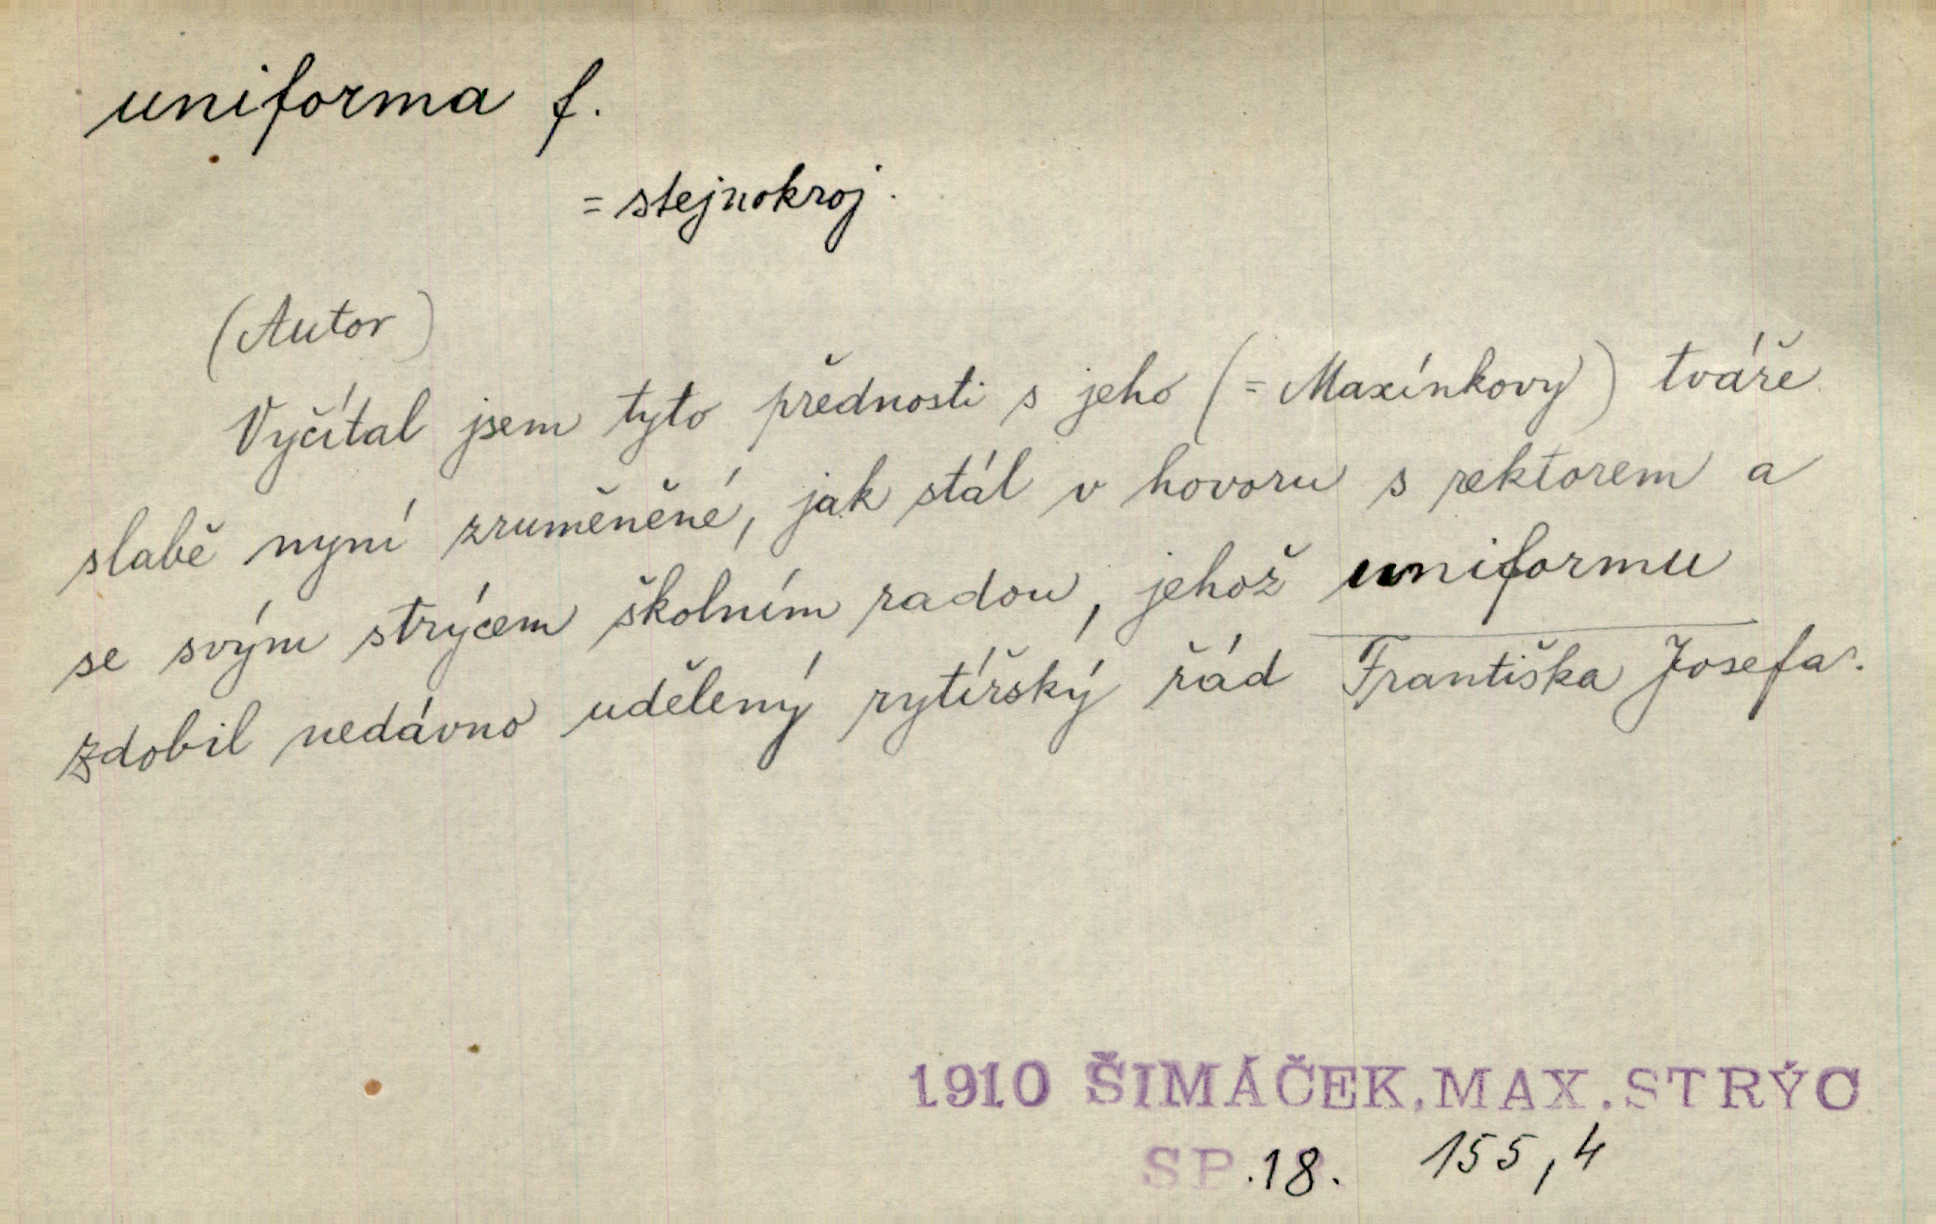 uniforma f.
= stejnokroj.
(Autor)
Vyčítal jsem tyto přednosti s jeho (= Maxínkovy) tváře
slabě nyní zruměněné, jak stál v hovoru s rektorem a
se svým strýcem školním radou, jehož uniformu
zdobil nedávno udělený rytířský řád Františka Josefa.
1910 ŠIMÁČEK, MAX. STRÝC
SP. 18. 155,4